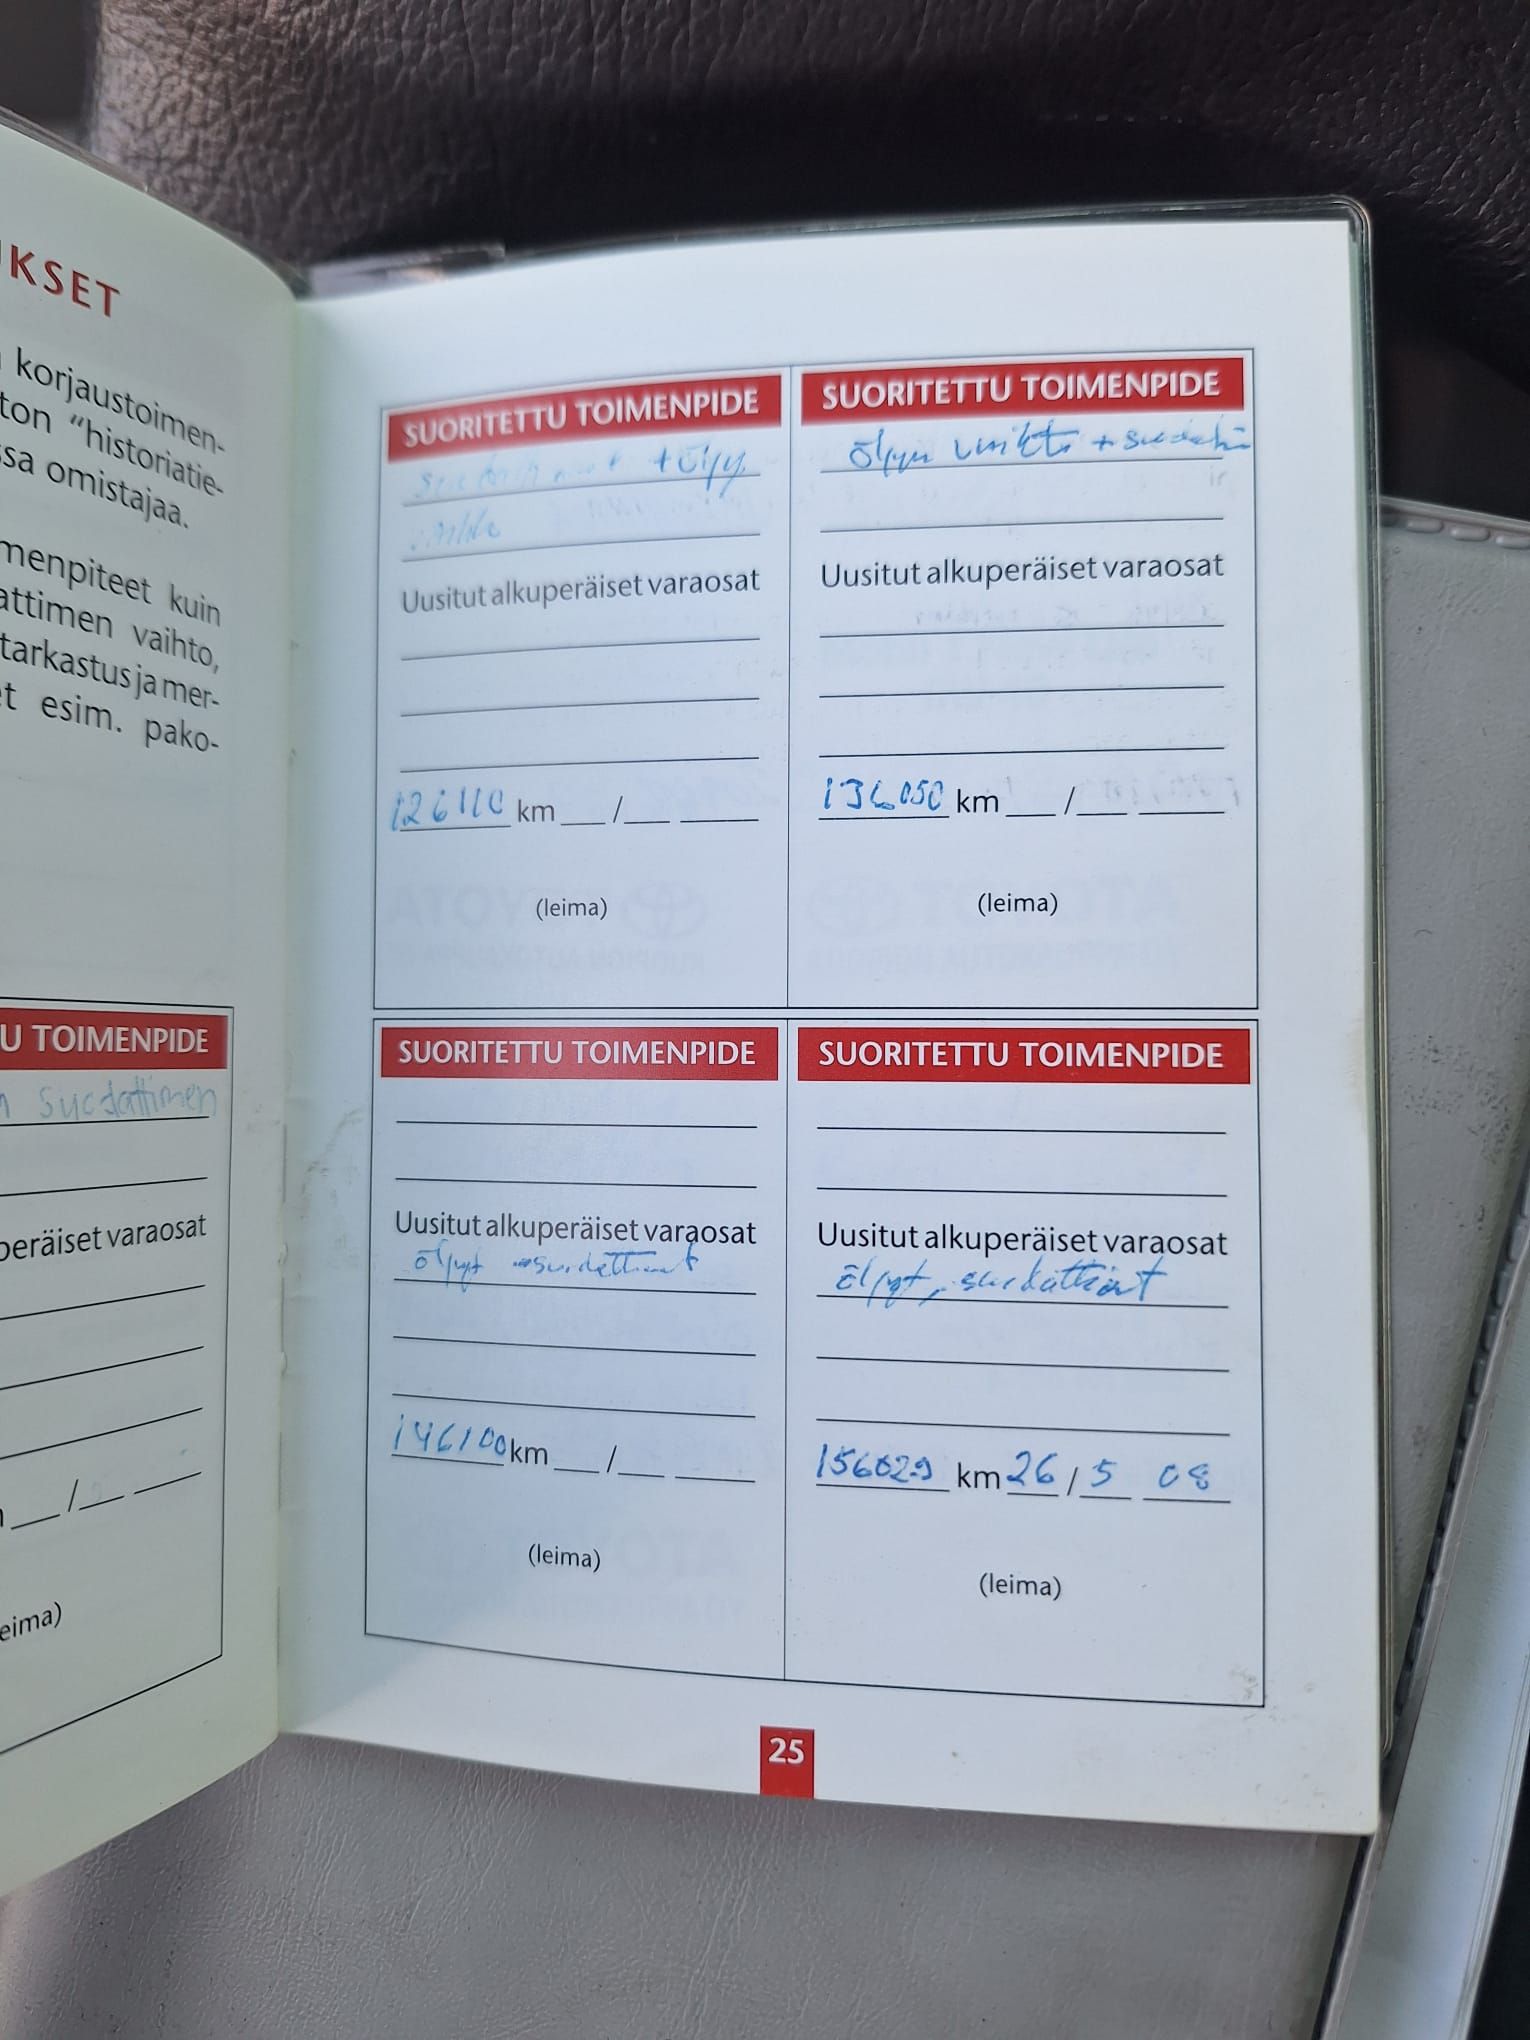 UKSET
korjaustoimen-
ton "historiatie-
ssa omistajaa.
menpiteet kuin
attimen vaihto,
tarkastus ja mer-
et esim. pako-
U TOIMENPIDE
n suodattimen
peräiset varaosat
/
eima)
SUORITETTU TOIMENPIDE
+ öljy
Uusitut alkuperäiset varaosat
126110 km /
(leima)
SUORITETTU TOIMENPIDE
öljyn vaihto + suodatin
Uusitut alkuperäiset varaosat
136050 km /
(leima)
SUORITETTU TOIMENPIDE
Uusitut alkuperäiset varaosat
öljyt suodattimet
146100 km /
(leima)
SUORITETTU TOIMENPIDE
Uusitut alkuperäiset varaosat
öljyt, suodattimet
156029 km 26 / 5 08
(leima)
25